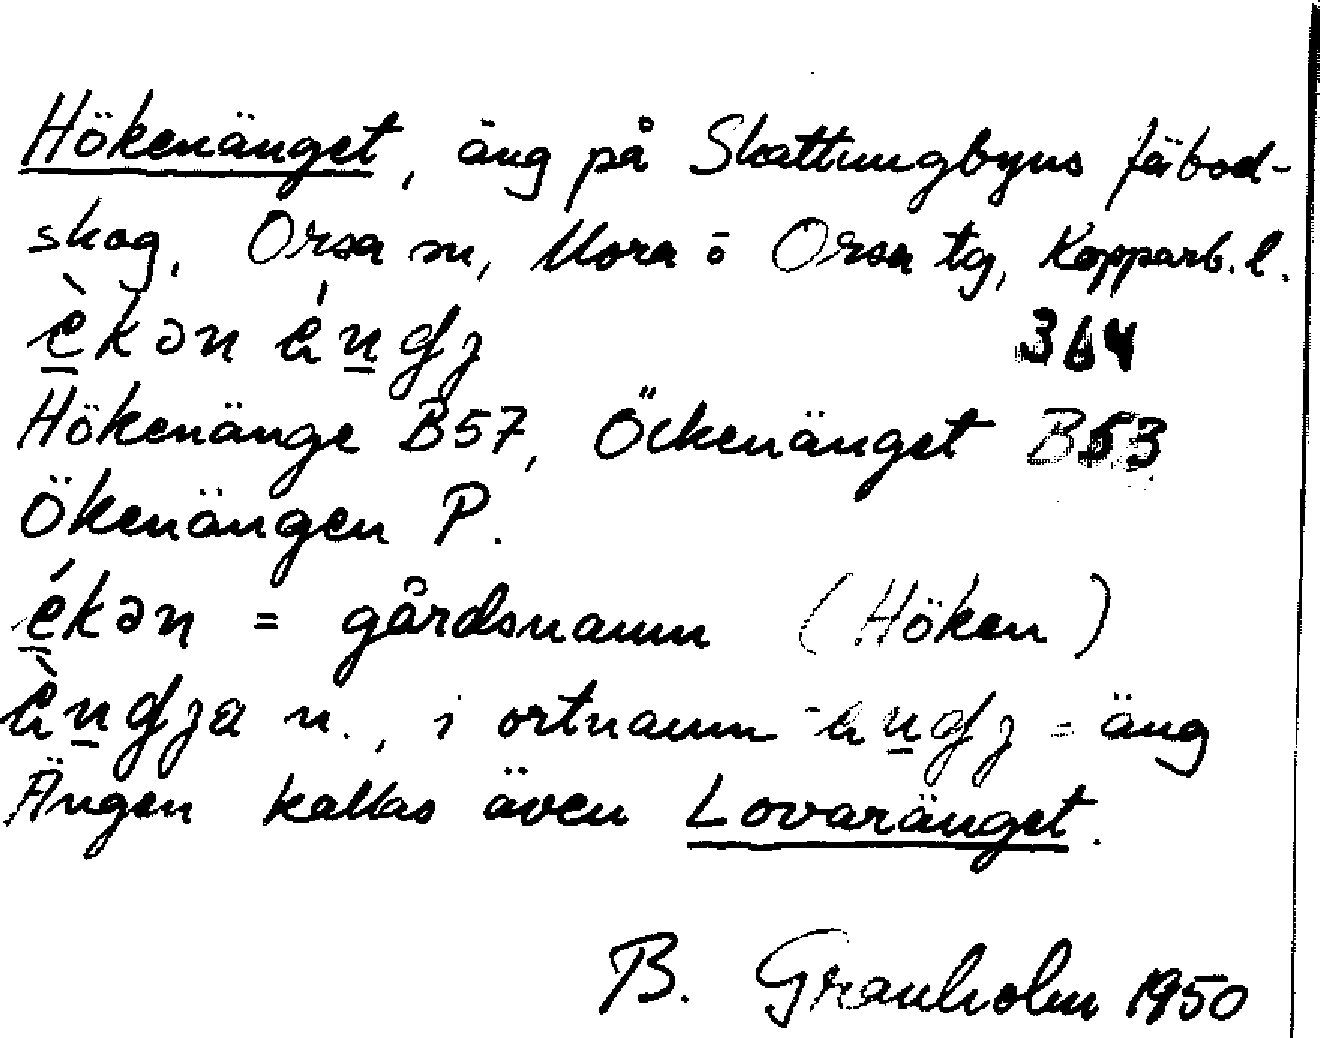 Hökenänget, äng på Skattungbyns fäbod-
skog, Orsa sn, Mora o Orsa tg, Kopparb. l.
èkən ängʒ 364
Hökenänge B57, Öckenänget B53
Ökenängen P.
ékən = gårdsnamn (Höken)
ängʒa n., i ortnamn -ängʒ = äng
Ängen kallas även Lovaränget.
B. Granholm 1950